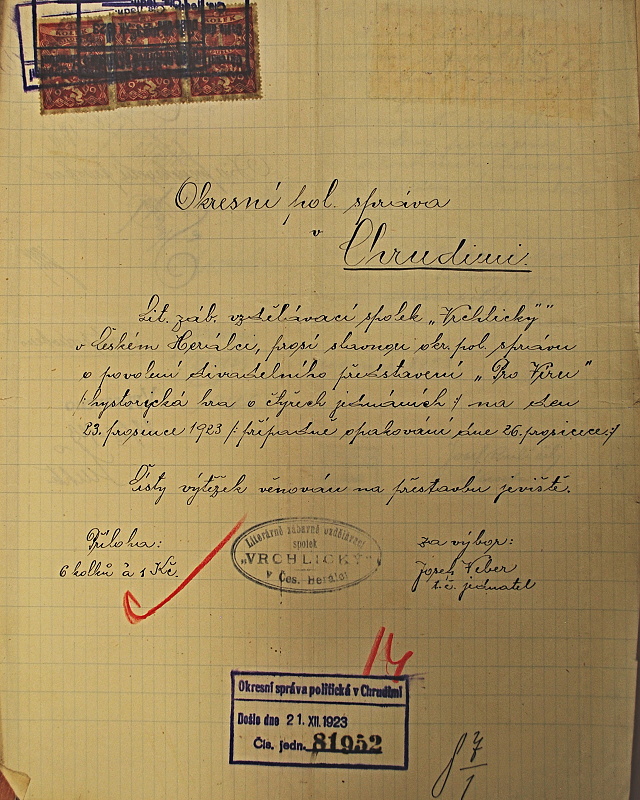 KOLEK
Okresní pol. správa
v
Chrudimi.
Lit. záb. vzdělávací spolek „Vrchlický"
v Českém Herálci, prosí slavnou okr. pol. správu
o povolení divadelního představení „Pro Víru"
/: hystorická hra o čtyřech jednáních :/ na den
23. prosince 1923 /: případné opakování dne 26. prosicece. :/
Čistý výtěžek věnován na přestavbu jeviště.
Příloha:
6 kolků à 1 Kč.
Literárně zábavně vzdělávací
spolek
„VRCHLICKÝ"
v Čes. Herálci
za výbor:
Josef Veber
t. č. jednatel
14
Okresní správa politická v Chrudimi
Došlo dne 21. XII. 1923
Čís. jedn. 81952